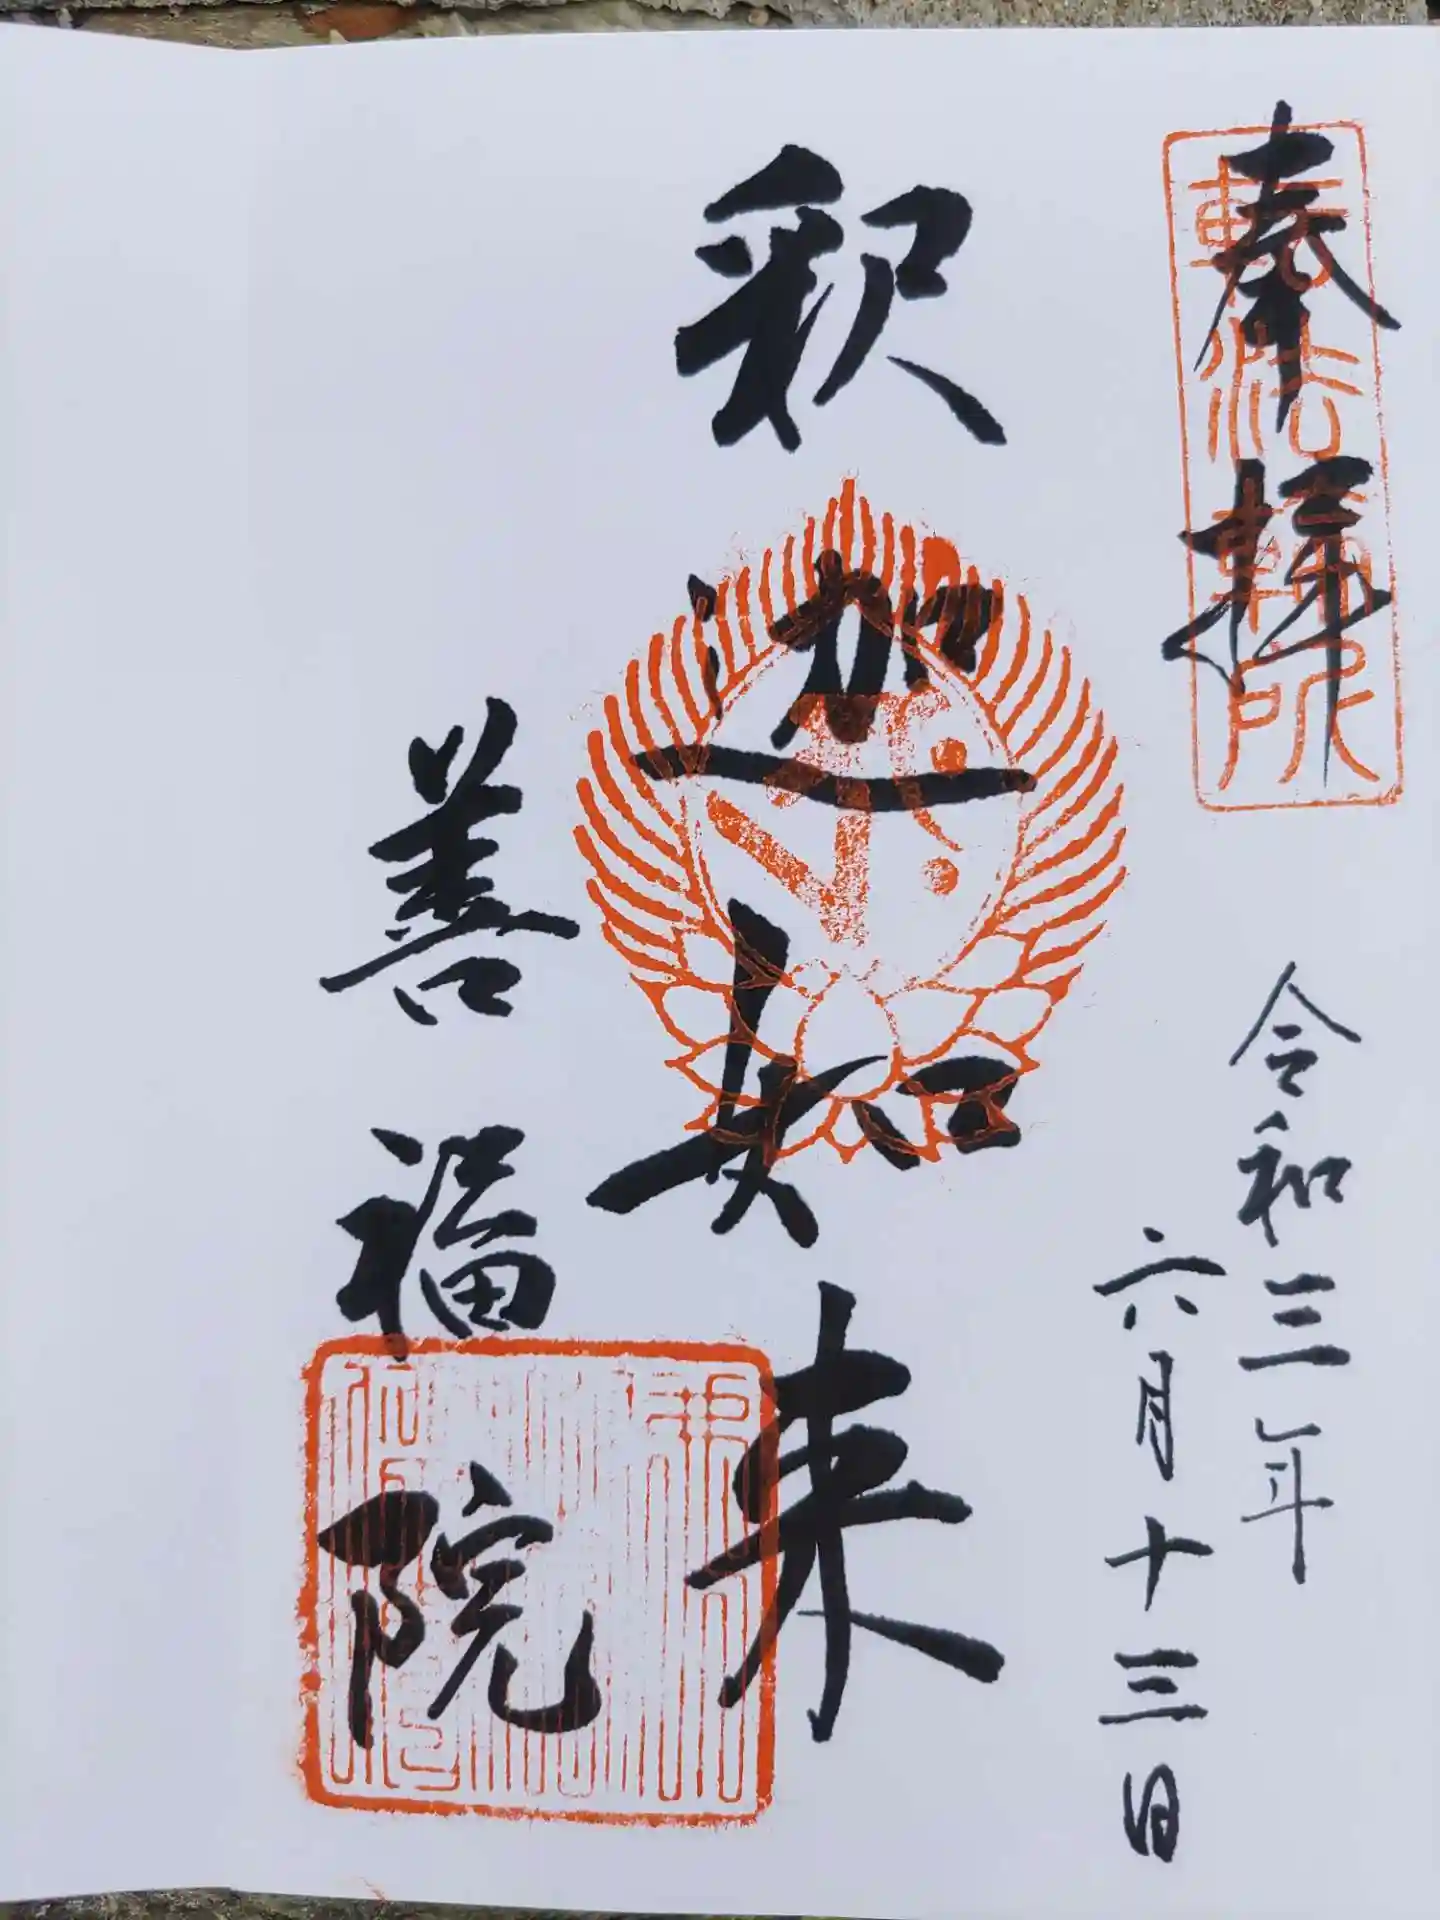 奉拝
轉法輪所
令和三年
六月十三日
釈迦如来
善福院